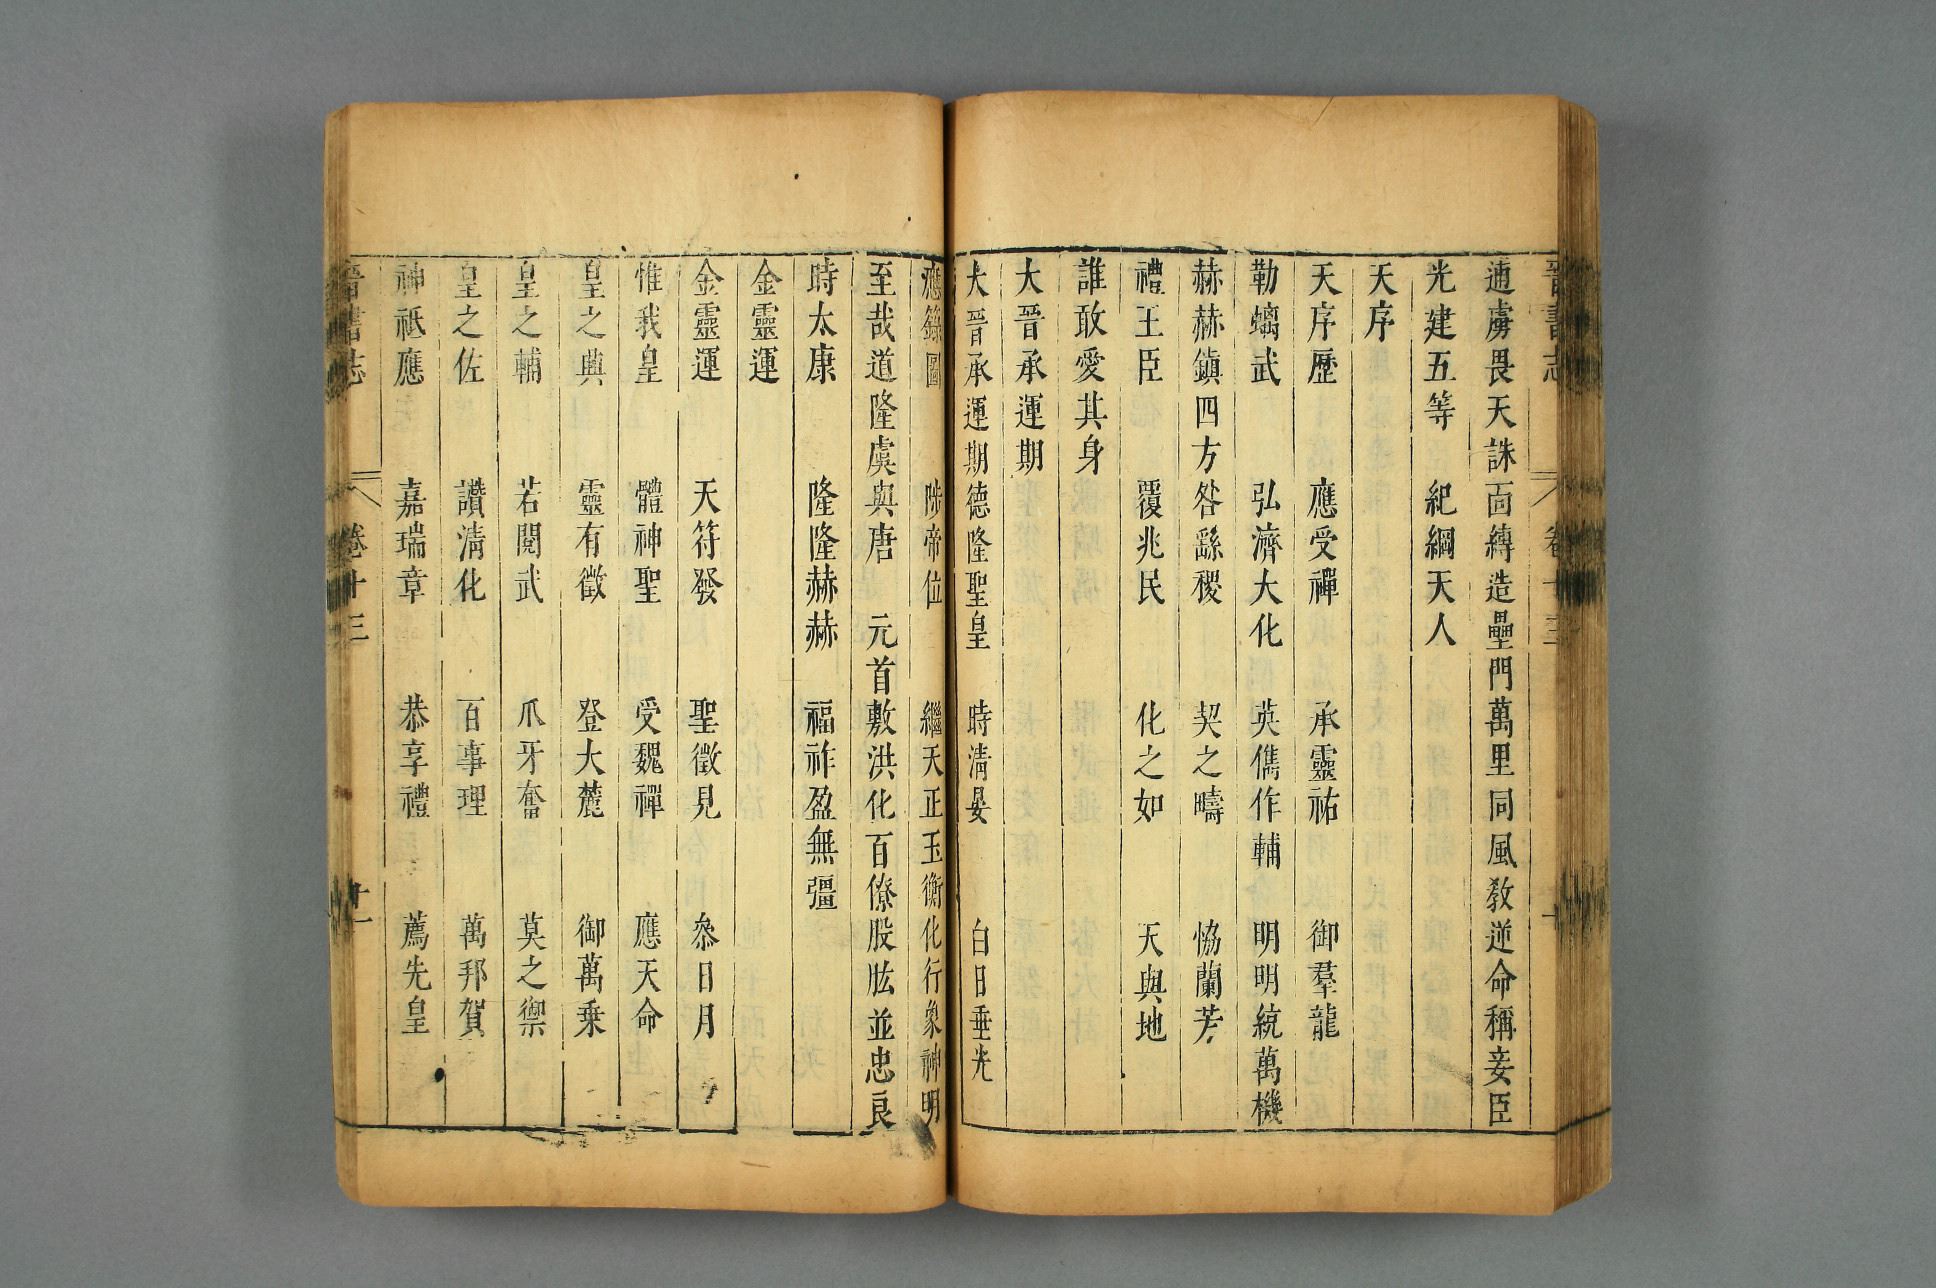 晉書志
卷十三
逋虜畏天誅面縛造壘門萬里同風教逆命稱妾臣
光建五等 紀綱天人
天序
天序歷 應受禪 承靈祐 御羣龍
勒螭武 弘濟大化 英儁作輔 明明統萬機
赫赫鎮四方 咎繇稷 契之疇 恊蘭芳
禮王臣 覆兆民 化之如 天與地
誰敢愛其身
大晉承運期
大晉承運期德隆聖皇 時淸晏 白日垂光
應籙圖 陟帝位 繼天正玉衡化行象神明
至哉道隆虞與唐 元首敷洪化百僚股肱並忠良
時太康 隆隆赫赫 福祚盈無彊
金靈運
金靈運 天符發 聖徵見 叅日月
惟我皇 體神聖 受魏禪 應天命
皇之興 靈有徵 登大麓 御萬乗
皇之輔 若闞武 爪牙奮 莫之禦
皇之佐 讚淸化 百事理 萬邦賀
神祇應 嘉瑞章 恭享禮 薦先皇
晉書志 卷十三 十一